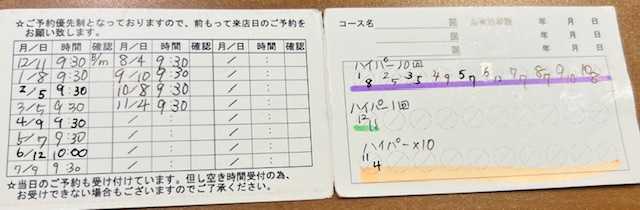 ☆ご予約優先制となっておりますので、前もって来店日のご予約を
お願い致します。
月/日 時間 確認 月/日 時間 確認
12/11 9:30 8/4 9:30
1/8 9:30 9/10 9:30
2/5 9:30 10/8 9:30
3/5 9:30 11/4 9:30
4/9 9:30 / :
5/7 9:30 / :
6/12 10:00 / :
7/9 9:30 / :
☆当日のご予約も受け付けています。但し空き時間受付の為、
お受けできない場合もございますのでご了承ください。
コース名 年 月 日
年 月 日
年 月 日
ハイパー10回
1/8 2/5 3/5 4/9 5/7 7/9 8/4 9/10 10/8
ハイパー1回
12/11
ハイパー×10
11/4